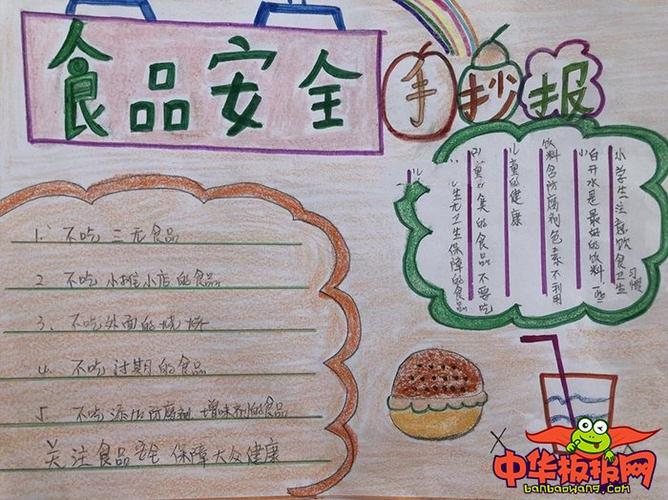 食品安全
手抄报
1. 不吃三无食品
2 不吃小摊小店的食品
3、不吃外面的烧烤
4 不吃过期的食品
5 不吃添加防腐剂 增味剂的食品
关注食品安全 保障大众健康
小学生注意饮食卫生习惯
白开水是最好的饮料 一些
饮料含防腐剂色素不利用
儿童的健康
儿童的 食品不要吃
生无卫生保障的食品
中华板报网
banbaowang.com